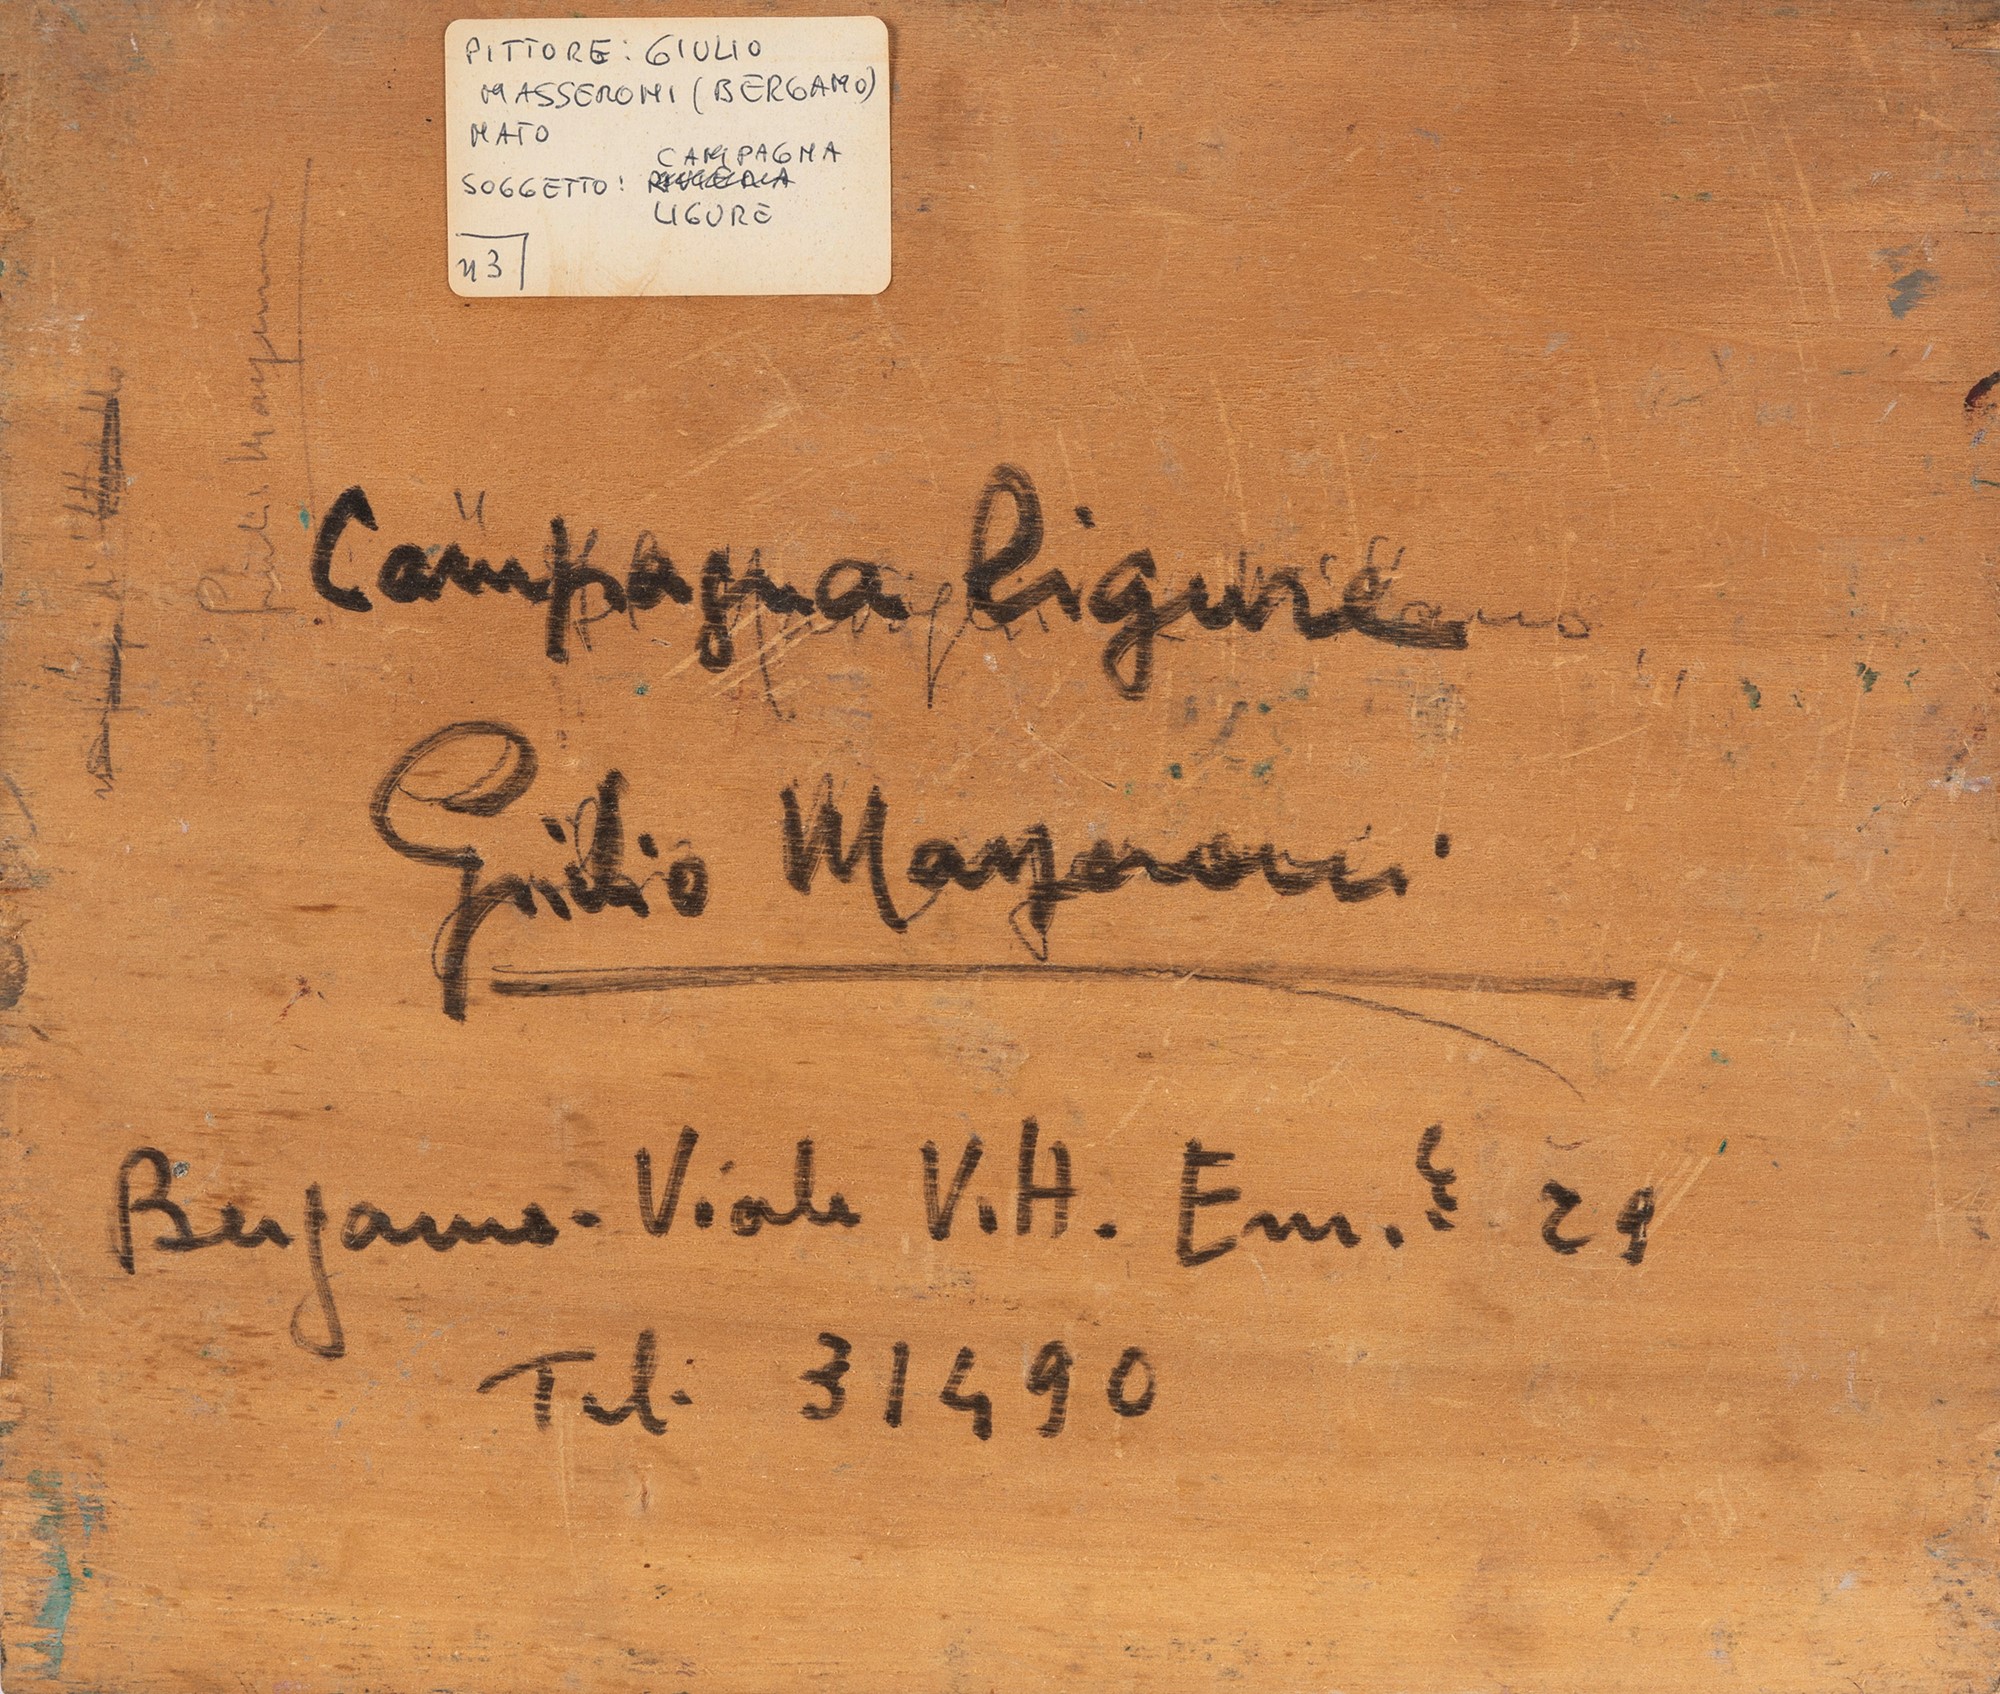 PITTORE: GIULIO
MASSERONI (BERGAMO)
NATO
CAMPAGNA
SOGGETTO:
LIGURE
n 3
Campagna Ligure
Giulio Masseroni
Bergamo - Viale V. H. Em. 29
Tel. 31490